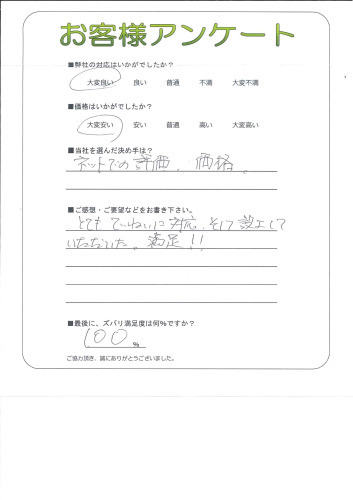 お客様アンケート
■弊社の対応はいかがでしたか？
大変良い 良い 普通 不満 大変不満
■価格はいかがでしたか？
大変安い 安い 普通 高い 大変高い
■当社を選んだ決め手は？
ネットでの評価、価格。
■ご感想・ご要望などをお書き下さい。
とてもていねいに対応、そして設立して
いただいた。満足!!
■最後に、ズバリ満足度は何%ですか？
100%
ご協力頂き、誠にありがとうございました。